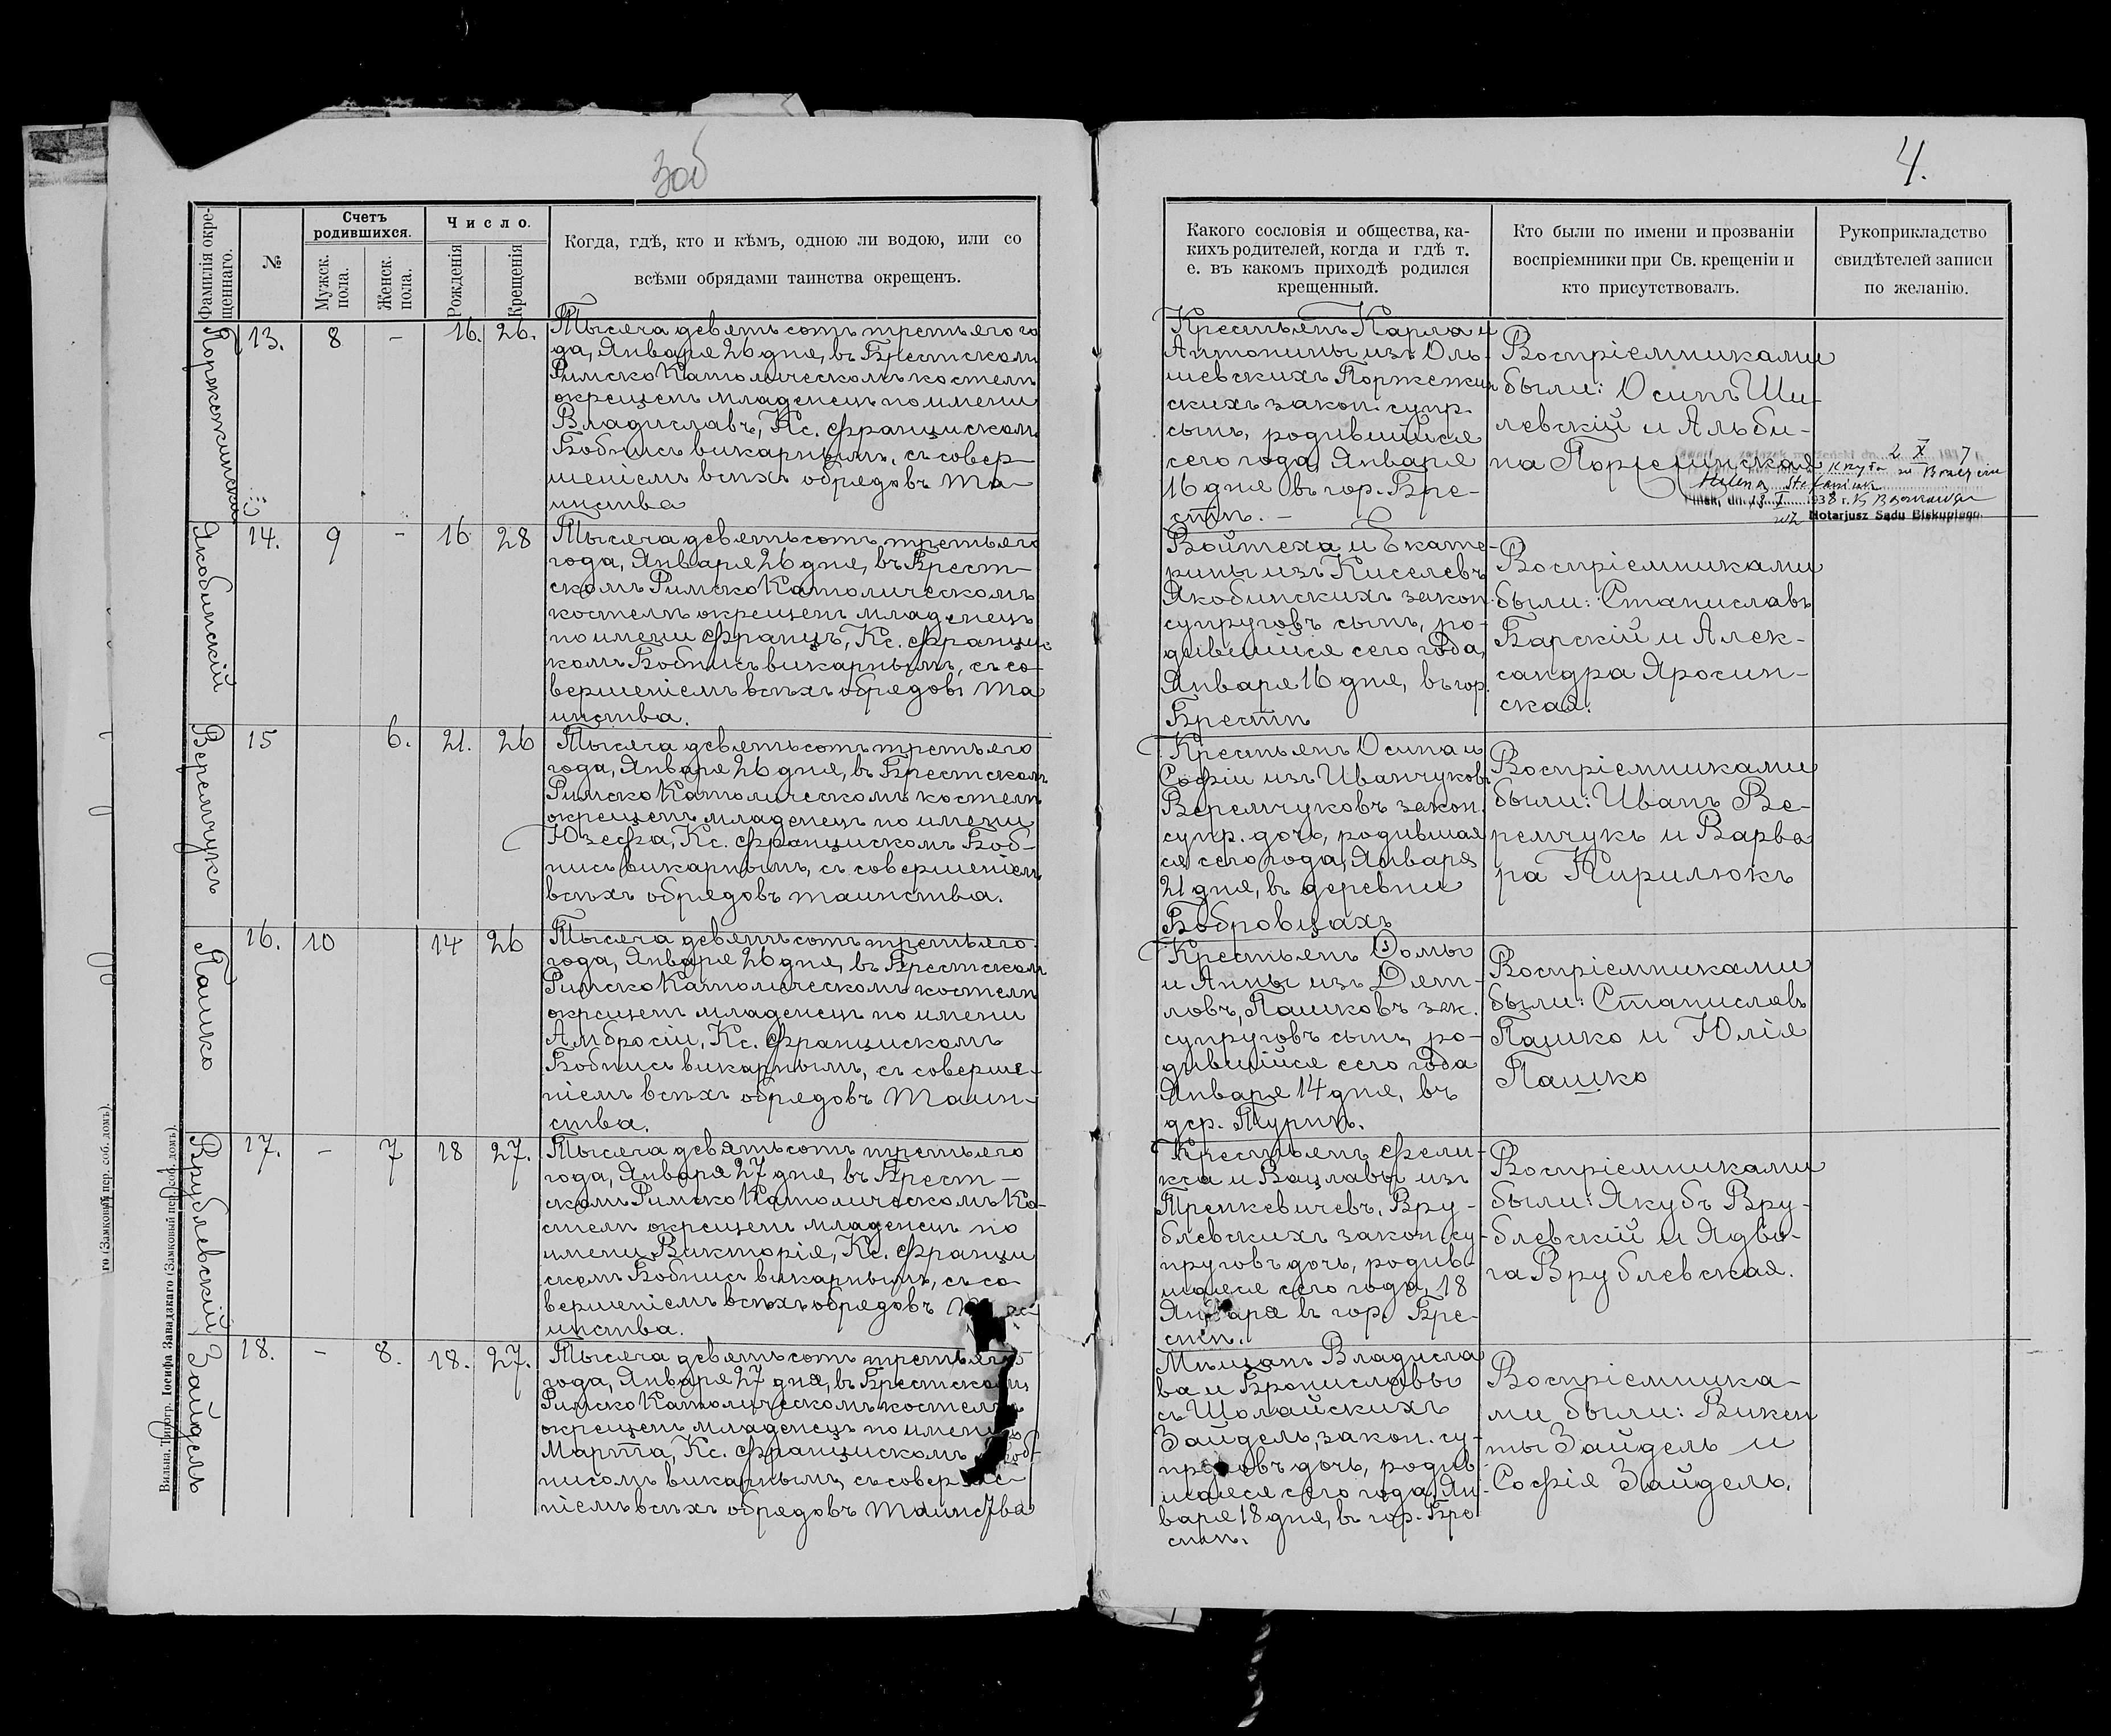 Зоб
4.
Фамилія окре-
щеннаго.
№
Счетъ
родившихся.
Мужск.
пола.
Женск.
пола.
Число.
Рожденія
Крещенія
Когда, гдѣ, кто и кѣмъ, одною ли водою, или со
всѣми обрядами таинства окрещенъ.
Какого сословія и общества, ка-
кихъ родителей, когда и гдѣ т.
е. въ какомъ приходѣ родился
крещенный.
Кто были по имени и прозваніи
воспріемники при Св. крещеніи и
кто присутствовалъ.
Рукоприкладство
свидѣтелей записи
по желанію.
13.
8
-
16.
26.
Тысяча девятьсотъ третьяго го
да, Января 26 дня, въ Брестскомъ
Римско Католическомъ костелѣ
окрещенъ младенецъ по имени
Владиславъ, Кс. Францискомъ
Бобнисъ викарнымъ, съ совер-
шеніемъ всѣхъ обрядовъ Та-
инства
Крестьянъ Карла и
Антонины изъ Оль-
шевскихъ
скихъ закон. супр.
сынъ, родившійся
сего года, Января
16 дня въ гор. Бре-
стѣ. -
Воспріемниками
были: Осипъ Ши-
левскій и Альби-
на
2 X 1937 г.
Helena Stefaniuk
Pińsk, dn. 18 I 1938 r.
wz Notarjusz Sądu Biskupiego
Якобинскій
14.
9
-
16
28
Тысяча девятьсотъ третьяго
года, Января 26 дня, въ Брест-
скомъ Римско Католическомъ
костелѣ окрещенъ младенецъ
по имени Францъ, Кс. Францис
комъ Бобнисъ викарнымъ, съ со-
вершеніемъ всѣхъ обрядовъ Та
инства.
Войтеха и Екате-
рины изъ Киселевъ
Якобинскихъ закон.
супруговъ сынъ, ро-
дившійся сего года,
Января 16 дня, въ гор.
Брестѣ
Воспріемниками
были: Станиславъ
Барскій и Алек-
сандра Яросин-
ская.
Веремчукъ
15
6.
21.
26
Тысяча девятьсотъ третьяго
года, Января 26 дня, въ Брестскомъ
Римско Католическомъ костелѣ
окрещенъ младенецъ по имени
Юзефа, Кс. Францискомъ Боб-
нисъ викарнымъ, съ совершеніемъ
всѣхъ обрядовъ таинства.
Крестьянъ Осипа и
Софіи изъ Иванчуковъ
Веремчуковъ закон.
супр. дочь, родившая
ся сего года, Января
21 дня, въ деревни
Бобровцахъ
Воспріемниками
были: Иванъ Ве-
ремчукъ и Варва
ра Кирилюкъ
Пашко
16.
10
14
26
Тысяча девятьсотъ третьяго
года, Января 26 дня, въ Брестскомъ
Римско Католическомъ костелѣ
окрещенъ младенецъ по имени
Амбросіи, Кс. Францискомъ
Бобнисъ викарнымъ, съ соверше-
ніемъ всѣхъ обрядовъ Таин-
ства.
Крестьянъ Ѳомы
и Анны изъ Дет-
ловъ, Пашковъ зак.
супруговъ сынъ, ро-
дившійся сего года
Января 14 дня, въ
дер. Турнѣ.
Воспріемниками
были: Станиславъ
Пашко и Юлія
Пашко
Врублевскій
17.
-
7
18
27.
Тысяча девятьсотъ третьяго
года, Января 27 дня, въ Брест-
скомъ Римско Католическомъ Ко-
стелѣ окрещенъ младенецъ по
имени Викторія, Кс. Франци
скомъ Бобнисъ викарнымъ, съ со
вершеніемъ всѣхъ обрядовъ
инства.
Крестьянъ Фели-
кса и Вацлавы изъ
Тренкевичевъ, Вру-
блевскихъ закон. су-
пруговъ дочь, родив-
шаяся сего года, 18
Января въ гор. Бре-
стѣ.
Воспріемниками
были: Якубъ Вру-
блевскій и Ядви-
га Врублевская.
Зайдель
18.
-
8.
18.
27.
Тысяча девятьсотъ третьяго
года, Января 27 дня, въ Брестскомъ
Римско Католическомъ костелѣ
окрещенъ младенецъ по имени
Марта, Кс. Францискомъ Боб-
нисомъ викарнымъ, съ соверше-
ніемъ всѣхъ обрядовъ таинства
Мѣщанъ Владисла
ва и Брониславы
съ Шолайскихъ
Зайдель, закон. су-
пруговъ дочь, родив
шаяся сего года, Ян-
варя 18 дня, въ гор. Бре
стѣ.
Воспріемника-
ми были: Викен
ты Зайдель и
Софія Зайдель.
Вильна, Типогр. Іосифа Завадзкаго (Замковый пер. соб. домъ).
го (Замковый пер. соб. домъ).